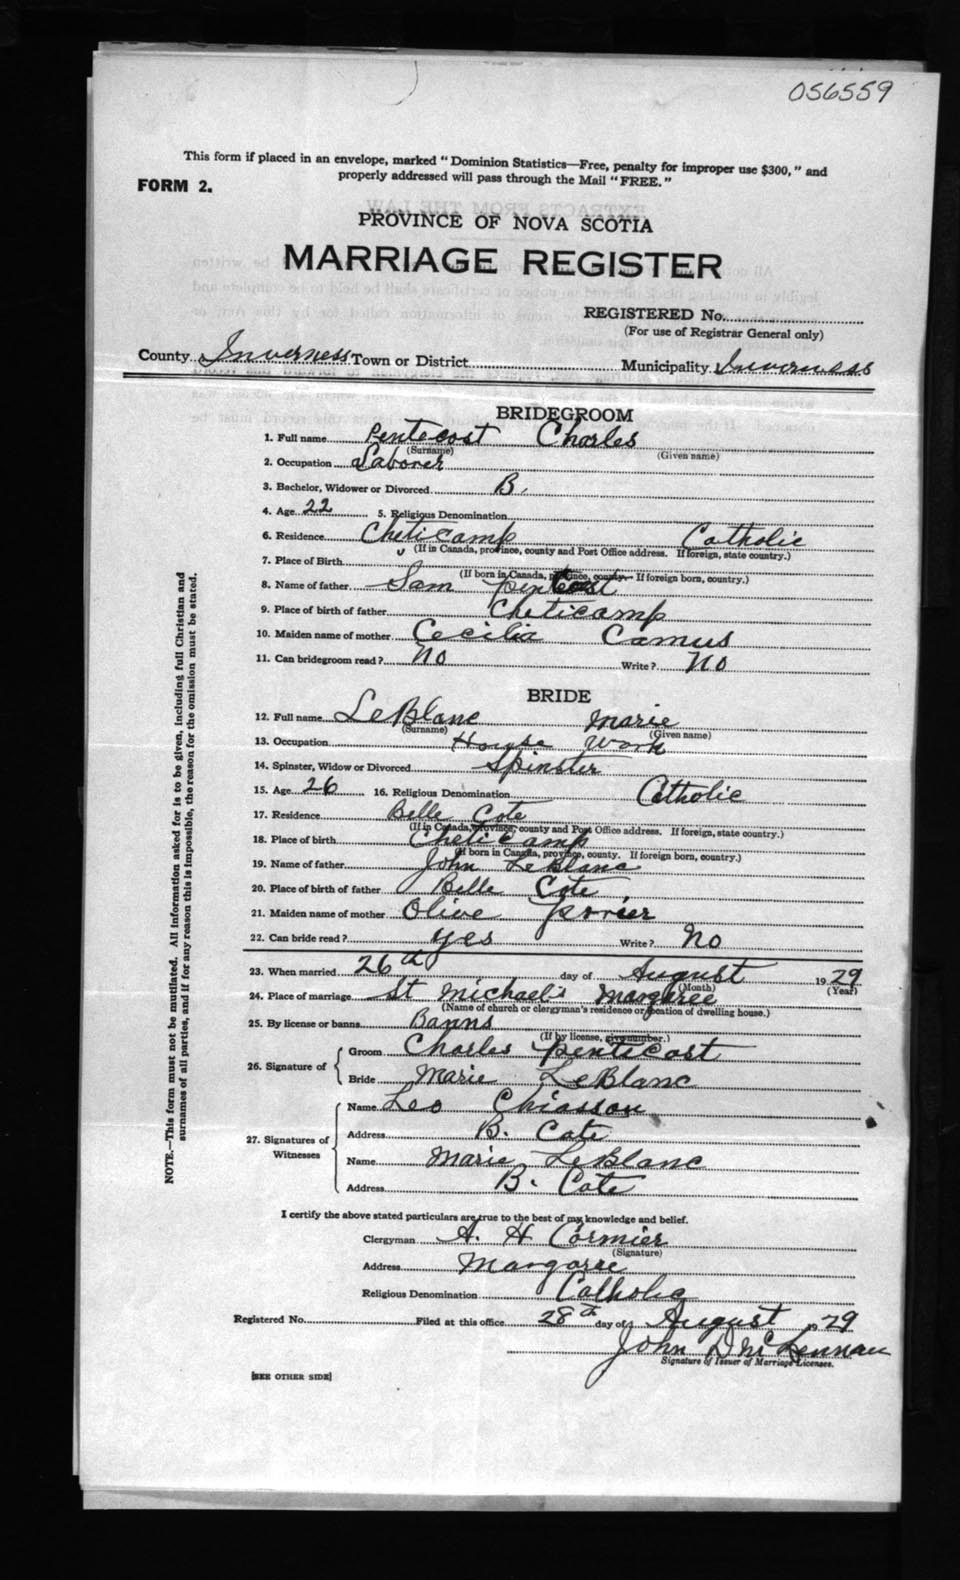 056559
This form if placed in an envelope, marked "Dominion Statistics—Free, penalty for improper use $300," and
properly addressed will pass through the Mail "FREE."
FORM 2.
PROVINCE OF NOVA SCOTIA
MARRIAGE REGISTER
REGISTERED No.
(For use of Registrar General only)
County Inverness Town or District Municipality Inverness
BRIDEGROOM
1. Full name Pentecost Charles
(Surname) (Given name)
2. Occupation Laborer
3. Bachelor, Widower or Divorced B.
4. Age 22 5. Religious Denomination
6. Residence Cheticamp Catholic
(If in Canada, province, county and Post Office address. If foreign, state country.)
7. Place of Birth
(If born in Canada, province, county. If foreign born, country.)
8. Name of father Sam Pentcost
9. Place of birth of father Cheticamp
10. Maiden name of mother Cecilia Camus
11. Can bridegroom read? No Write? No
BRIDE
12. Full name LeBlanc Marie
(Surname) (Given name)
13. Occupation House Work
14. Spinster, Widow or Divorced Spinster
15. Age 26 16. Religious Denomination Catholic
17. Residence Belle Cote
(If in Canada, province, county and Post Office address. If foreign, state country.)
18. Place of birth Cheticamp
(If born in Canada, province, county. If foreign born, country.)
19. Name of father John LeBlanc
20. Place of birth of father Belle Cote
21. Maiden name of mother Olive
22. Can bride read? yes Write? No
23. When married 26th day of August 1929
(Month) (Year)
24. Place of marriage St Michael's Margaree
(Name of church or clergyman's residence or location of dwelling house.)
25. By license or banns Banns
(If by license, give number.)
26. Signature of Groom Charles Pentecost
Bride Marie LeBlanc
27. Signatures of Witnesses
Name Leo Chiasson
Address B. Cote
Name Marie LeBlanc
Address B. Cote
I certify the above stated particulars are true to the best of my knowledge and belief.
Clergyman A. H Cormier
(Signature)
Address Margaree
Religious Denomination Catholic
Registered No. Filed at this office 28th day of August 1929
John D McLennan
Signature of Issuer of Marriage Licenses.
[SEE OTHER SIDE]
NOTE.—This form must not be mutilated. All information asked for is to be given, including full Christian and
surnames of all parties, and if for any reason this is impossible, the reason for the omission must be stated.